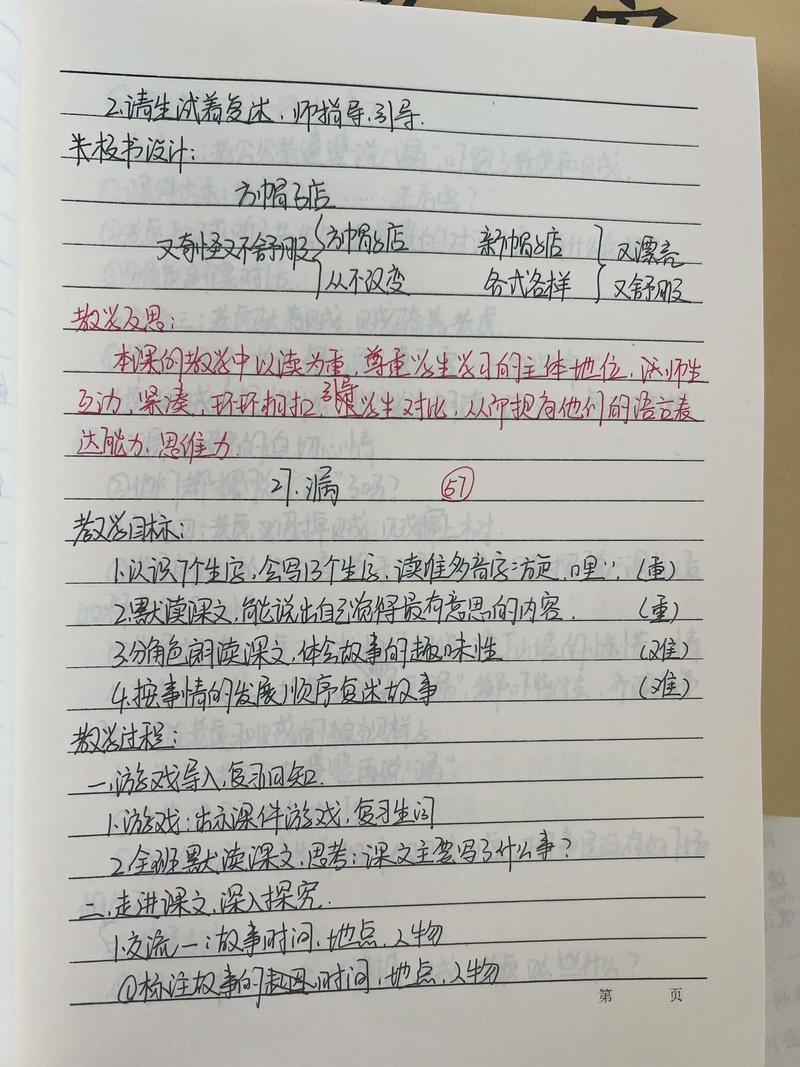 2.请生试着复述,师指导、引导.
*板书设计:
方帽子店
又奇怪又不舒服{方帽子店 新帽子店}又漂亮
从不改变 各式各样 又舒服
教学反思:
本课的教学中以读为重,尊重学生学习的主体地位,注师生
互动,紧凑,环环相扣,引导学生对比,从而提高他们的语言表
达能力、思维力
27.漏 57
教学目标:
1.认识7个生字,会写13个生字,读准多音字:旋、哩… (重)
2.默读课文,能说出自己觉得最有意思的内容. (重)
3.分角色朗读课文,体会故事的趣味性 (难)
4.按事情的发展顺序复述故事 (难)
教学过程:
一.游戏导入,复习旧知.
1.游戏:出示课件游戏,复习生词
2.全班默读课文,思考:课文主要写了什么事?
二.走进课文,深入探究.
1.交流一:故事时间、地点、人物
①标注故事的起因,时间、地点、人物
第 页